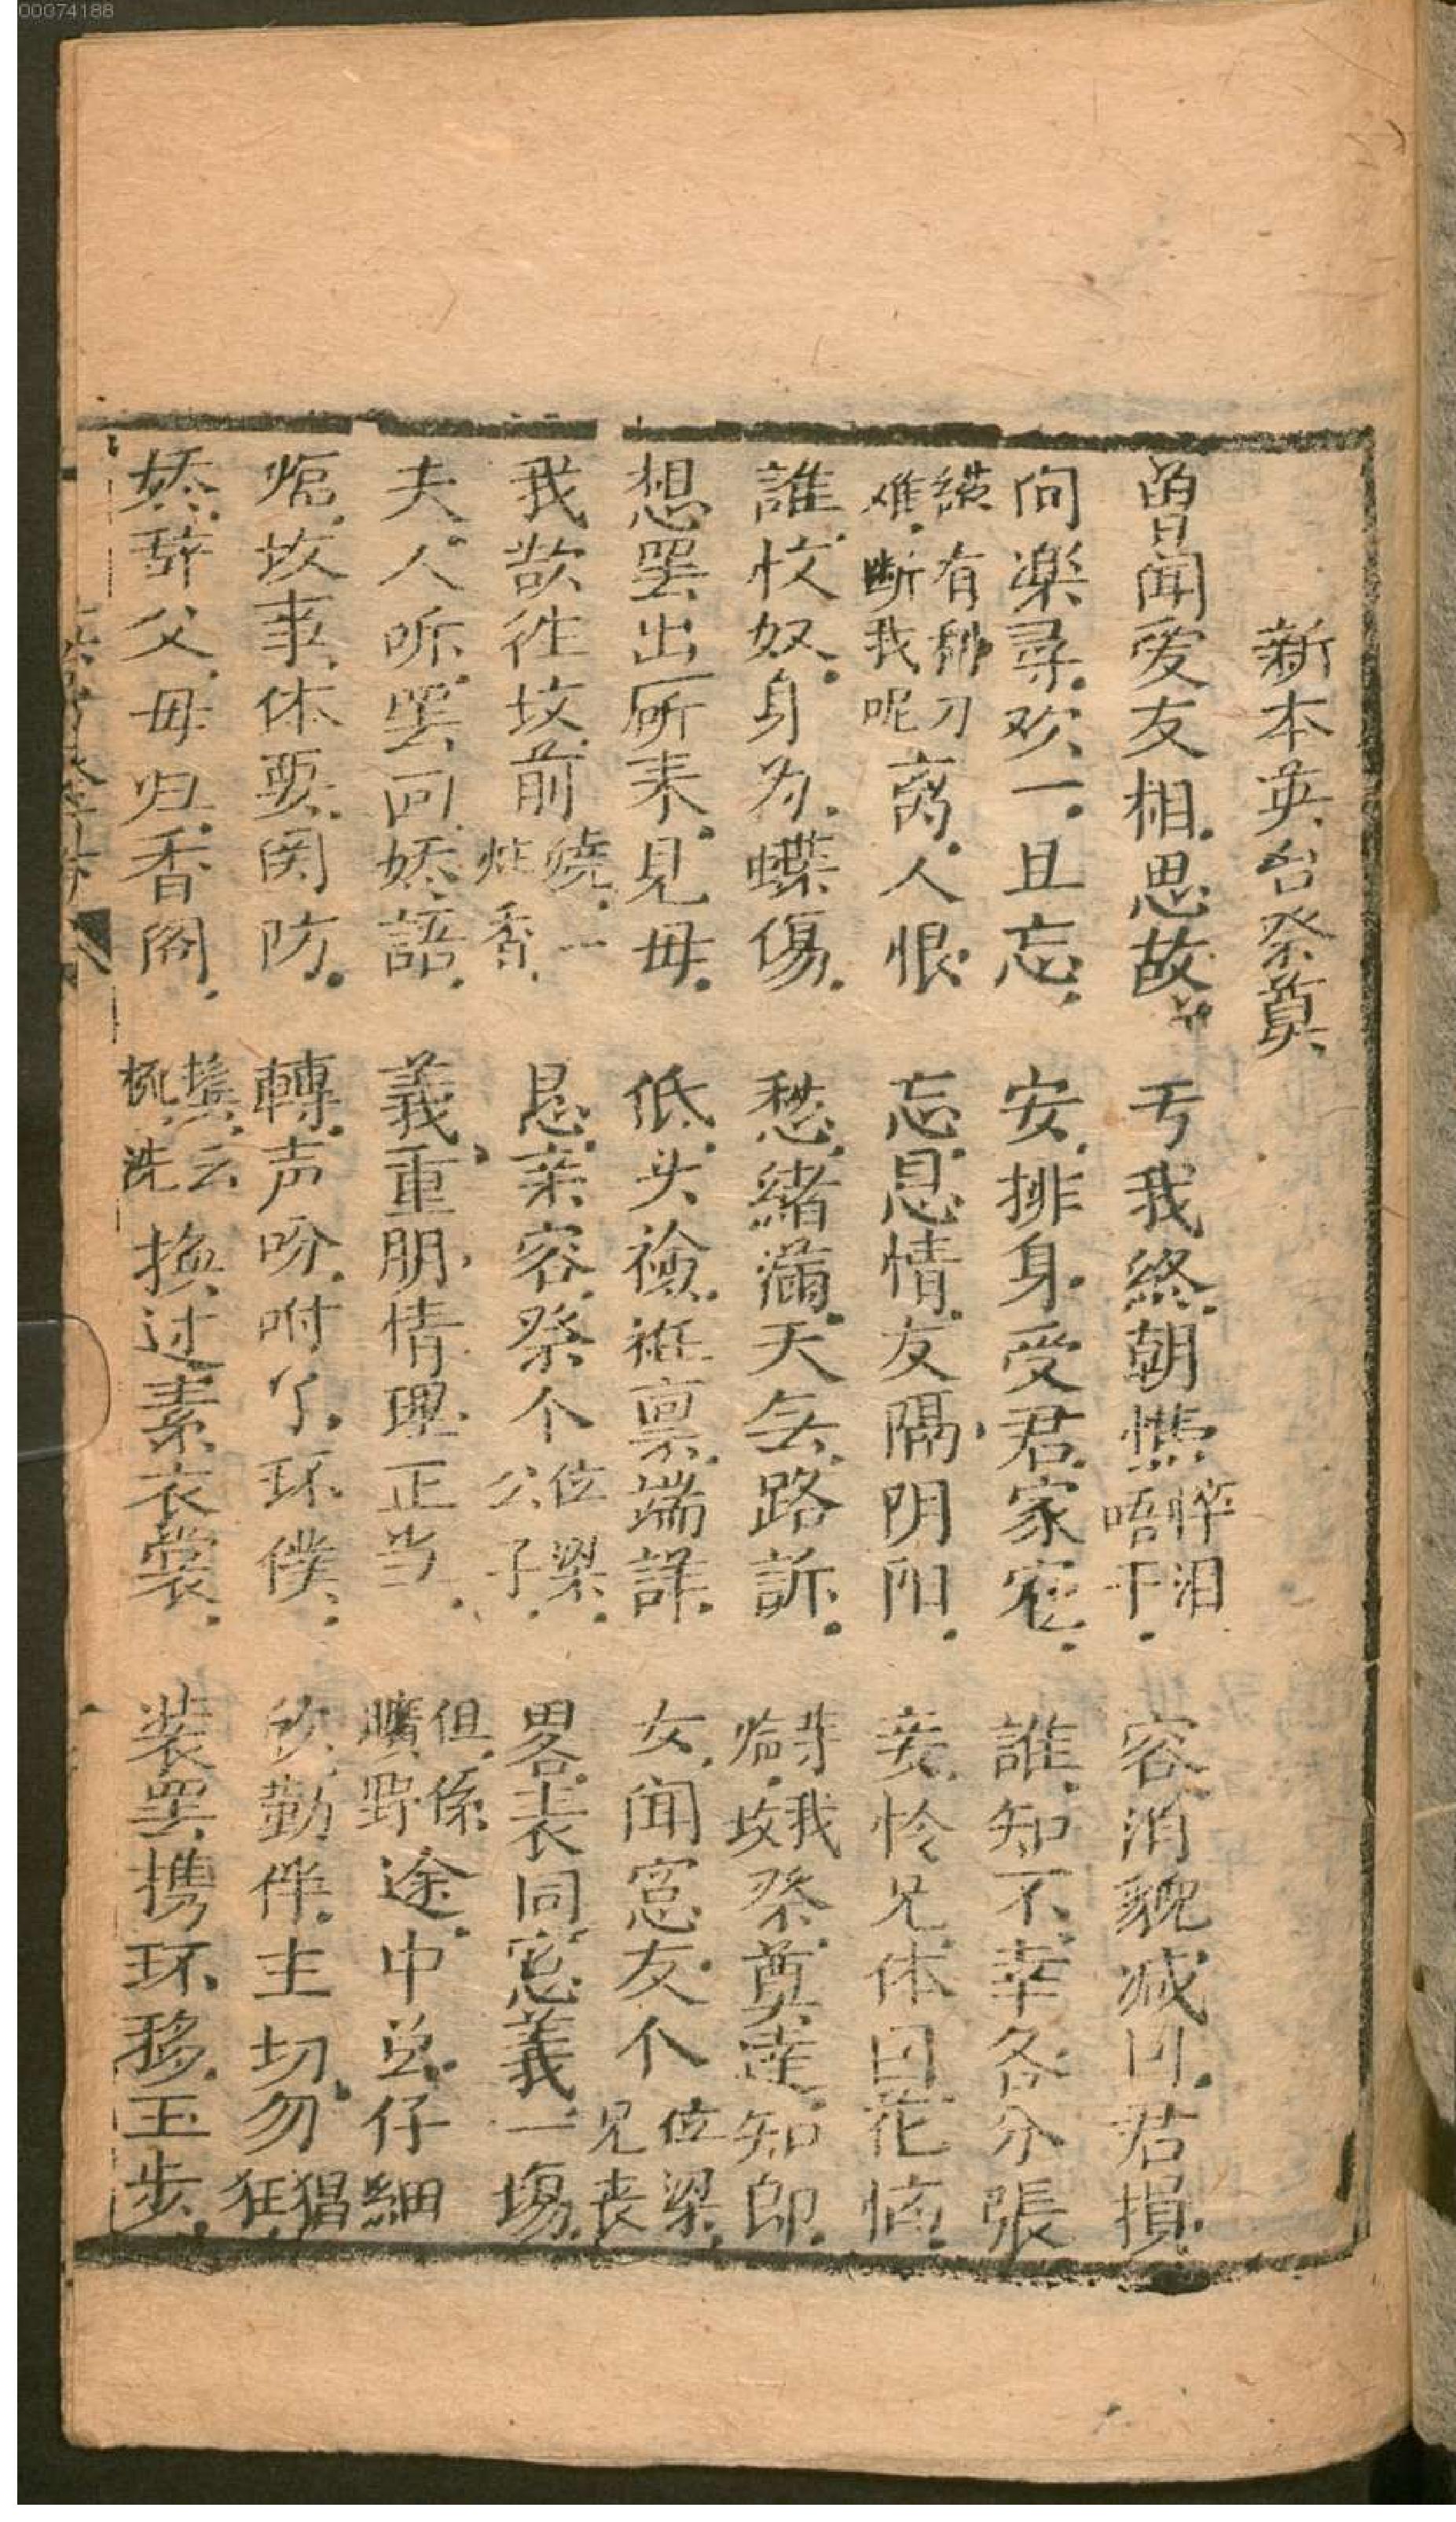 00074188
新本英台祭奠
曾闻爱友相思故 亏我終朝憔悴泪唔干 容消貌减因君損
向楽尋欢一旦忘 安排身受君家宠 誰知不幸各分張
縂有利刀难断我呢离人恨 忘恩情友隔阴阳 妾怜兄体因花惱
誰忟奴身为蝶傷 愁緒滿天無路訴 待我临坟祭奠達知郎
想罢出㕔来見毋 低头裣袵禀端詳 女闻窓友个位梁兄丧
我欲徃坟前燒一炷香 恳亲容祭个位梁公子 畧表同窓義一塲
夫人听罢回嬌語 義重朋情理正当 但係曠野途中总仔細
临坟事休要関防 轉声吩咐了环僕 伙勤伴主切勿猖狂
嬌辞父毋归香阁 換过素衣裳 装罢携环移玉步